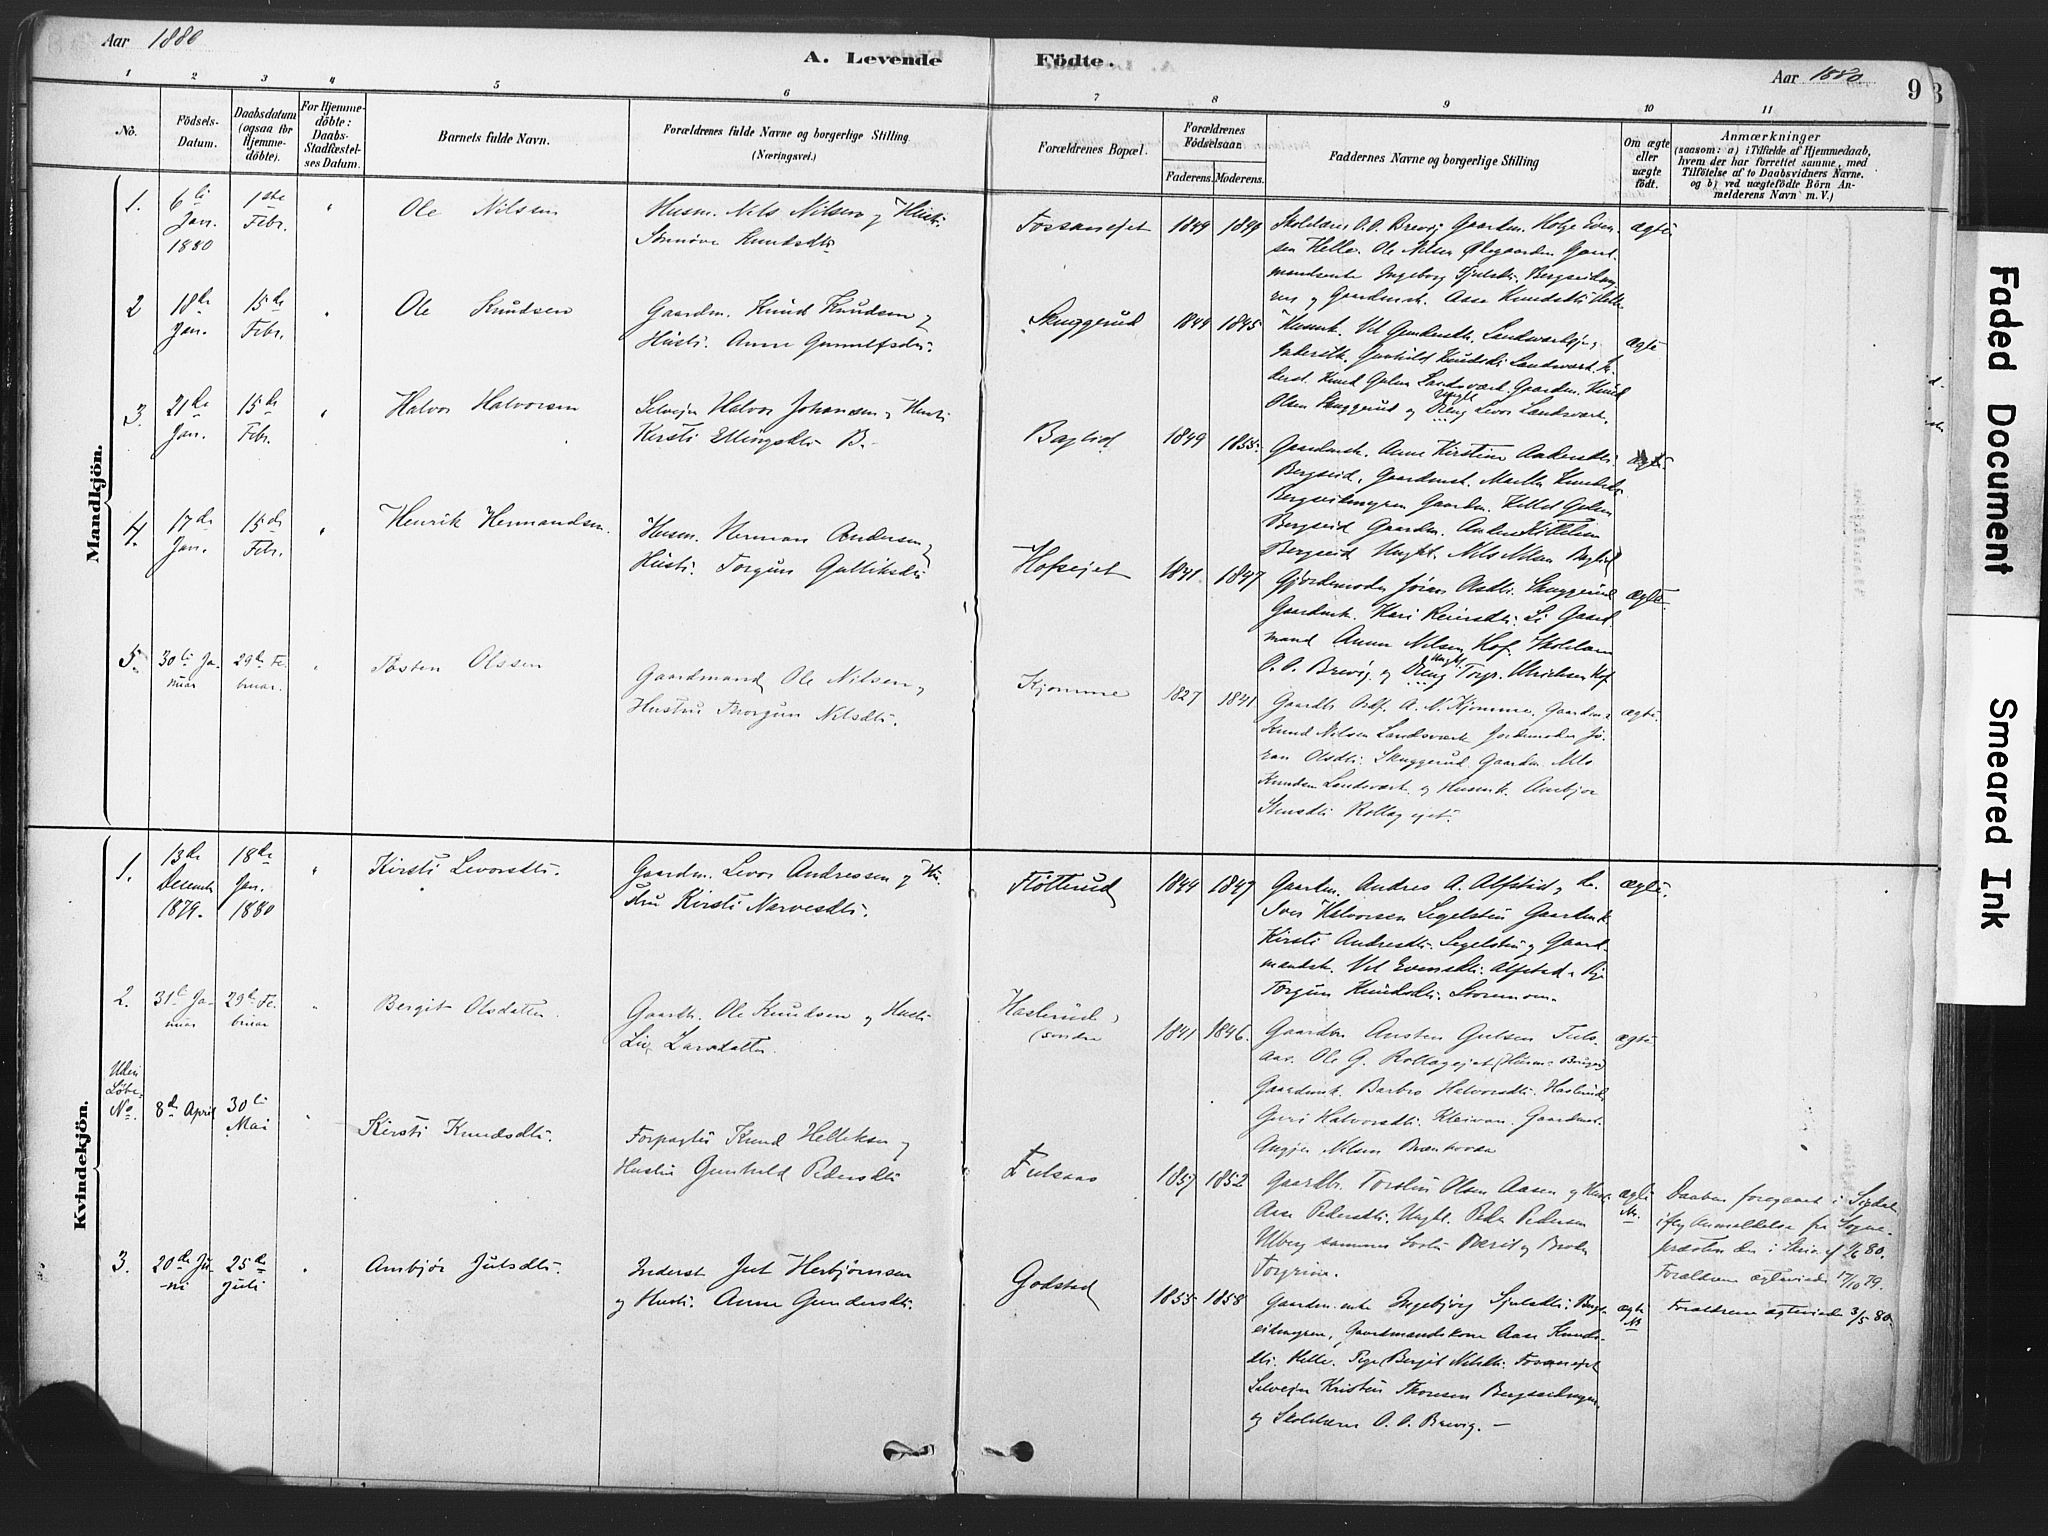 Aar 1880
A. Levende Födte.
Aar 1880.
9
3
1 2 3 4 5 6 7 8 9 10 11
No.
Födsels-
Datum.
Daabsdatum
(ogsaa for
Hjemme-
döbte).
For Hjemme-
döbte:
Daabs-
Stadfæstel-
ses Datum.
Barnets fulde Navn.
Forældrenes fulde Navne og borgerlige Stilling
(Næringsvei.)
Forældrenes Bopæl.
Forældrenes
Födselsaar.
Faderens. Moderens.
Faddernes Navne og borgerlige Stilling
Om ægte
eller
uægte
födt.
Anmærkninger
(saasom: a) i Tilfælde af Hjemmedaab,
hvem der har forrettet samme, med
Tilföielse af to Daabsvidners Navne.
og b) ved uægtefödte Börn An-
melderens Navn m. V.)
Mandkjön.
1.
6te
Jan.
1880
1ste
Febr.
Ole Nilsen
Husm. Nils Nilsen og Hustr.
Sønnøve Knudsdtr
Fossaneiet
1849
Skolelærer O. O. Brevig Gaardm. Helge Even-
sen Helle. Ole Nilsen Øigaarden Gaard-
mandsenke Ingeborg Sjulsdtr. Bergseidmy-
ren og Gaardmk. Aase Knudsdtr Helle
ægte
2
18de
Jan.
15de
Febr.
Ole Knudsen
Gaardm. Knud Knudsen og
Hustr. Anne Gunnulfsdtr.
Skuggerud
1844 1845
Olsen Skuggerud og Ungk. Levor Landsværk.
ægte
3.
21de
Jan.
15de
Febr.
Halvor Halvorsen
Selveier Halvor Johansen og Hustr.
Kersti Ellingsdtr B.
Baglid
1849 1855
Gaardmk. Anne Kirstine Andersdtr.
Bergseid, Gaardmk. Marthe Knudsdtr
Bergseidmyren Gaardm. Kittel Gulsen
Bergseid Gaardm. Anders Kittelsen
Bergseid Ungk. Nils Nilsen Baglid
ægte
4.
17de
Jan.
15de
Febr.
Henrik Hermandsen.
Husm. Herman Andersen og
Hustr. Torgun Gulliksdtr
Hofseiet
1841 1847
Gjordemoder Jøran Olsdtr. Skuggerud
Gaardmk. Kari Reiersdtr. Li Gaard-
mand Anun Nilsen Hof. Skolelærer
O. O. Brevig og Ungk. Torgr. Ulrichsen Hof
ægte
5.
30te Ja-
nuar
29de Fe-
bruar.
Tosten Olssen
Gaardmand Ole Nilsen og
Hustru Torgun Nilsdtr.
Kjomme
1827 1841
Gaardbr. Adf. A. N. Kjomme. Gaardm.
Knud Nilsen Landsværk Jordemoder Jø-
ran Olsdtr. Skuggerud. Gaardm. Nils
Knudsen Landsværk og Husmk. Ambjør
Rollageiet.
ægte.
Kvindekjön.
1.
13de
Decembr
1879.
18de
Jan.
1880
Kirsti Levorsdtr.
Gaardm. Levor Andressen og Hu-
stru Kirsti Narvesdtr.
Fløtterud
1844 1847
Gaardm. Andres A. Alfstad og do.
Iver Halvorsen Segelstin Gaardmk.
Kirsti Andresdtr. Segelstin og Gaard-
mandsk. Vel Evensdtr. Alfstad. Pige
Torgun Knudsdtr.
ægte.
2.
31te Ja-
nuar
29de Fe-
bruar
Bergit Olsdatter.
Gaardbr. Ole Knudsen og Hustr.
Liv Larsdatter.
Haslerud
(søndre
1841 1846.
Gaardbr. Ansten Gulsen Fuls-
aas. Ole G. Rollageiet (Husm. Bruger)
Gaardmk. Barbro Halvorsdtr. Haslerud,
Guri Halvorsdtr. Kleivan. Gaardmk.
ægte
Uden
Løbe-
No
8de April
30te
Mai
Kirsti Knudsdtr.
Forpagter Knud Helliksen og
Hustru Gunhild Pedersdtr
Fulsaas
1857 1852
Gaardbr. Torsten Olsen Aasen og Hustr.
Aase Pedersdtr. Ungk. Peder Pedersen
Ulberg sammes Søster Berit og Broder
Torgrim.
ægte
No.
Daaben foregaaet i Sigdal
ifølg Anmeldelse fra Sogne-
præsten der i Skriv. af 4/6 80.
Forældrene ægteviede 17/10 79.
3.
20de Ju-
ni
25de
Juli
Ambjør Julsdtr.
Inderst Jul Herbjørnsen
og Hustr. Anne Gundersdtr.
Gotstad
1855 1858
Gaardm. enke Ingebjørg Sjulsdtr. Bergs-
eidmyren, Gaardmandskone Aase Knuds-
dtr. Helle. Pige Bergit Nilsdtr. Fossaneiet
Selveier Kristen Thoresen Bergseidmyren
og Skolelærer O. O. Brevig. –
ægte
NB
Forældrene ægteviede 3/5 80.
Faded Document
Smeared Ink